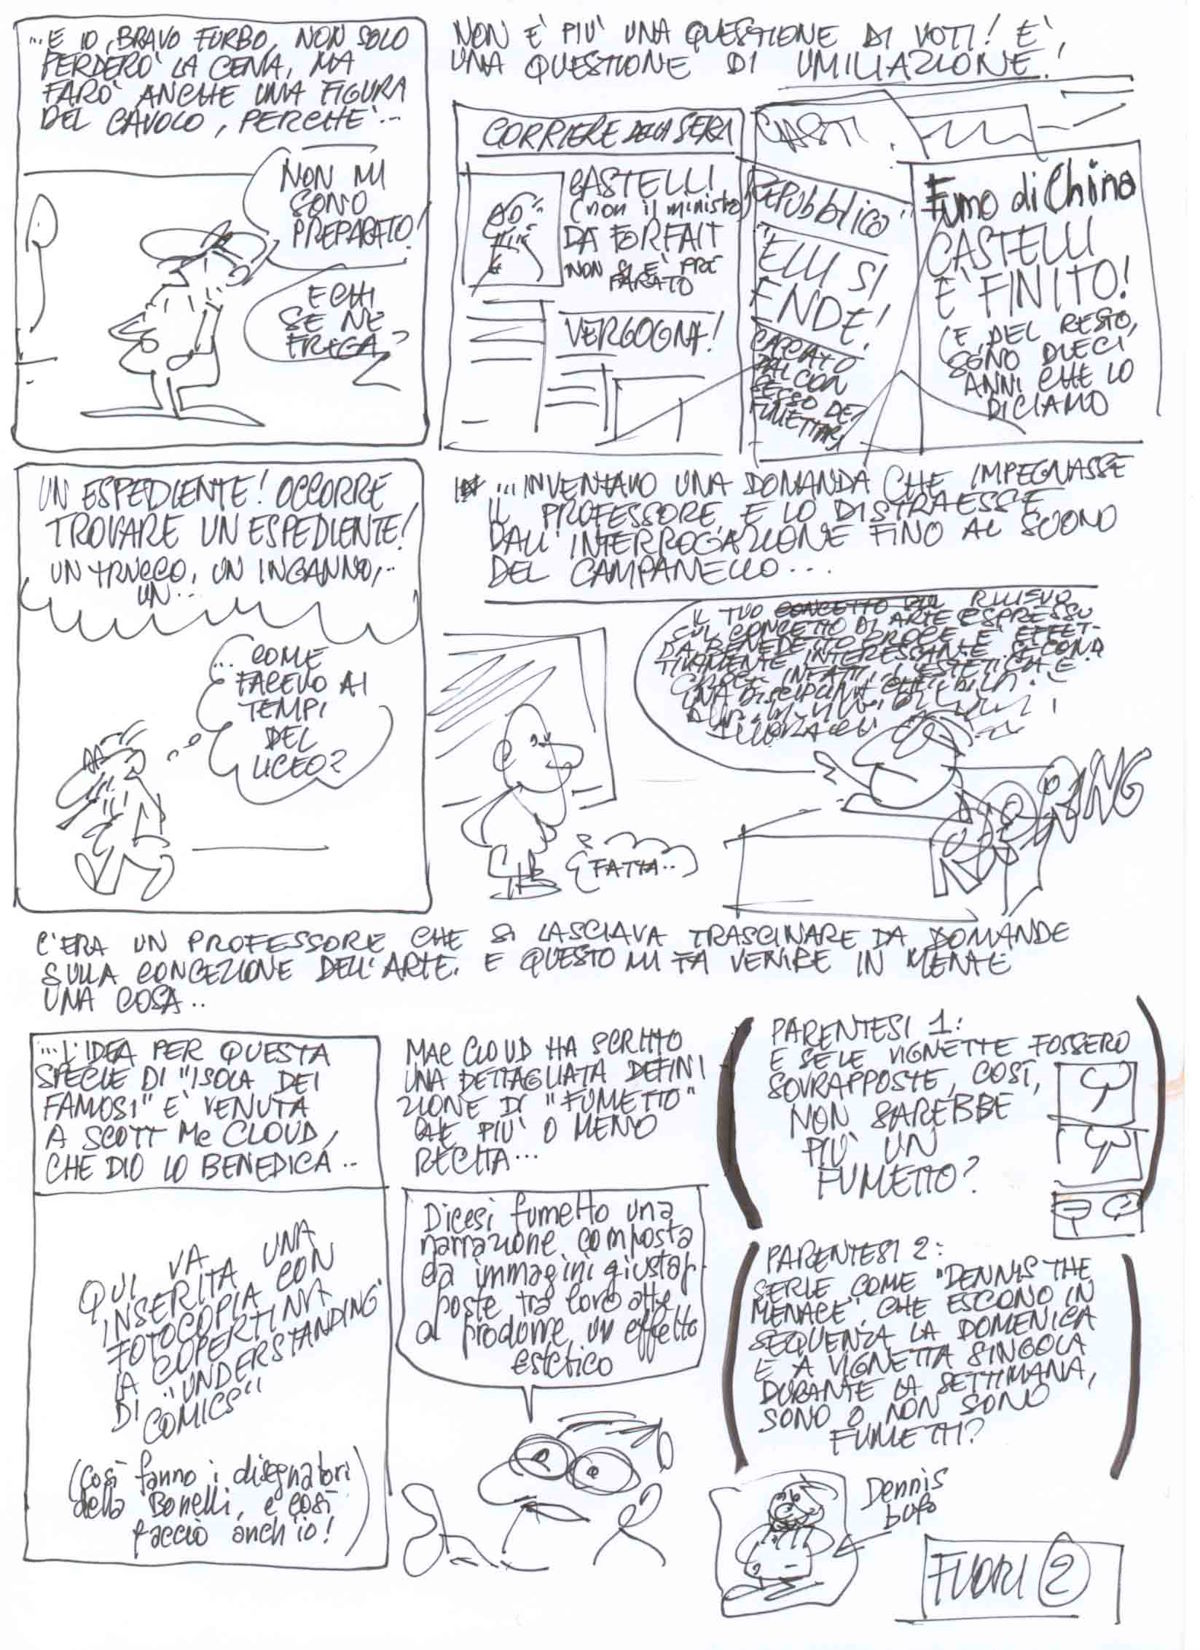 ...E IO, BRAVO FURBO, NON SOLO
PERDERO' LA CENA, MA
FARO' ANCHE UNA FIGURA
DEL CAVOLO, PERCHE'...
NON MI
SONO
PREPARATO!
E CHI
SE NE
FREGA?
NON E' PIU' UNA QUESTIONE DI VOTI! E'
UNA QUESTIONE DI UMILIAZIONE!
CORRIERE DELLA SERA
CASTELLI
(non il ministro)
DA FORFAIT
NON SI E' PRE
PARATO
VERGOGNA!
CASTI
REPubblica
ELLI SI
ENDE!
CACCIATO
DAL CON
SESSO DEI
FUMETTARI
Fumo di China
CASTELLI
E' FINITO!
(E, DEL RESTO,
SONO DIECI
ANNI CHE LO
DICIAMO
UN ESPEDIENTE! OCCORRE
TROVARE UN ESPEDIENTE!
UN TRUCCO, UN INGANNO,..
UN...
... COME
FACEVO AI
TEMPI
DEL
LICEO?
... INVENTAVO UNA DOMANDA CHE IMPEGNASSE
IL PROFESSORE E LO DISTRAESSE
DALL'INTERROGAZIONE FINO AL SUONO
DEL CAMPANELLO...
IL TUO RILIEVO
SUL CONCETTO DI ARTE ESPRESSO
DA BENEDETTO CROCE E' EFFET-
TIVAMENTE INTERESSANTE. SECONDO
CROCE, INFATTI, L'ESTETICA E'
UNA DISCIPLINA CHE
FATTA..
C'ERA UN PROFESSORE CHE SI LASCIAVA TRASCINARE DA DOMANDE
SULLA CONCEZIONE DELL'ARTE. E QUESTO MI FA VENIRE IN MENTE
UNA COSA..
...L'IDEA PER QUESTA
SPECIE DI "ISOLA DEI
FAMOSI" E' VENUTA
A SCOTT Mc CLOUD,
CHE DIO LO BENEDICA..
QUI VA
INSERITA UNA
FOTOCOPIA CON
LA COPERTINA
DI "UNDERSTANDING
COMICS"
(Così fanno i disegnatori
della Bonelli, e così
faccio anch'io!)
MAC CLOUD HA SCRITTO
UNA DETTAGLIATA DEFINI
ZIONE DI "FUMETTO"
CHE PIU' O MENO
RECITA...
Dicesi fumetto una
narrazione composta
da immagini giustap-
poste tra loro atte
a produrre un effetto
estetico
PARENTESI 1:
E SE LE VIGNETTE FOSSERO
SOVRAPPOSTE, COSI',
NON SAREBBE
PIU' UN
FUMETTO?
PARENTESI 2:
SERIE COME "DENNIS THE
MENACE", CHE ESCONO IN
SEQUENZA LA DOMENICA
E A VIGNETTA SINGOLA
DURANTE LA SETTIMANA,
SONO O NON SONO
FUMETTI?
Dennis
bufo
FUORI 2